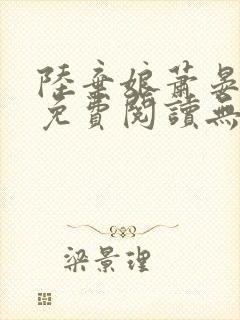 陸棄娘蕭晏
免費閱讀無
梁景理